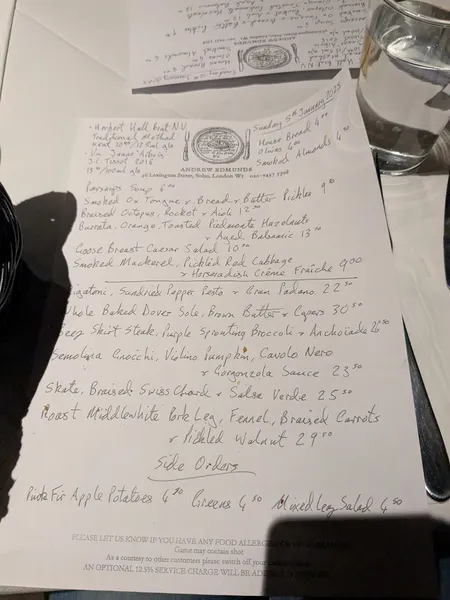 - Herbert Hall Brut N.V.
Traditional Method
Kent
- Vin Jaune Arbois
J.C. Tissot 2016
Sunday 5th January 2025
House Bread 4.00
Olives 4.00
Smoked Almonds 4
ANDREW EDMUNDS
46 Lexington Street, Soho, London W1
Parsnip Soup 6
Smoked Ox Tongue + Bread + Butter Pickles 9
Braised Octopus, Rocket + Aioli 12.50
Burrata, Orange, Toasted Piedmonte Hazelnuts
+ Aged Balsamic 13
Goose Breast Caesar Salad 10
Smoked Mackerel, Pickled Red Cabbage
+ Horseradish Crème Fraîche 9.00
Rigatoni, Sundried Pepper Pesto + Gran Padano 22.50
Whole Baked Dover Sole, Brown Butter + Capers 30.50
Beef Skirt Steak, Purple Sprouting Broccoli + Anchoïade 26.50
Semolina Gnocchi, Violino Pumpkin, Cavolo Nero
+ Gorgonzola Sauce 23.50
Skate, Braised Swiss Chard + Salsa Verde 25.50
Roast Middlewhite Pork Leg, Fennel, Braised Carrots
+ Pickled Walnut 29.50
Side Orders
Pink Fir Apple Potatoes 6.50 Greens 6.50 Mixed Leaf Salad 6.50
PLEASE LET US KNOW IF YOU HAVE ANY FOOD ALLERGIES
Game may contain shot
As a courtesy to other customers please switch off your
AN OPTIONAL 12.5% SERVICE CHARGE WILL BE ADDED